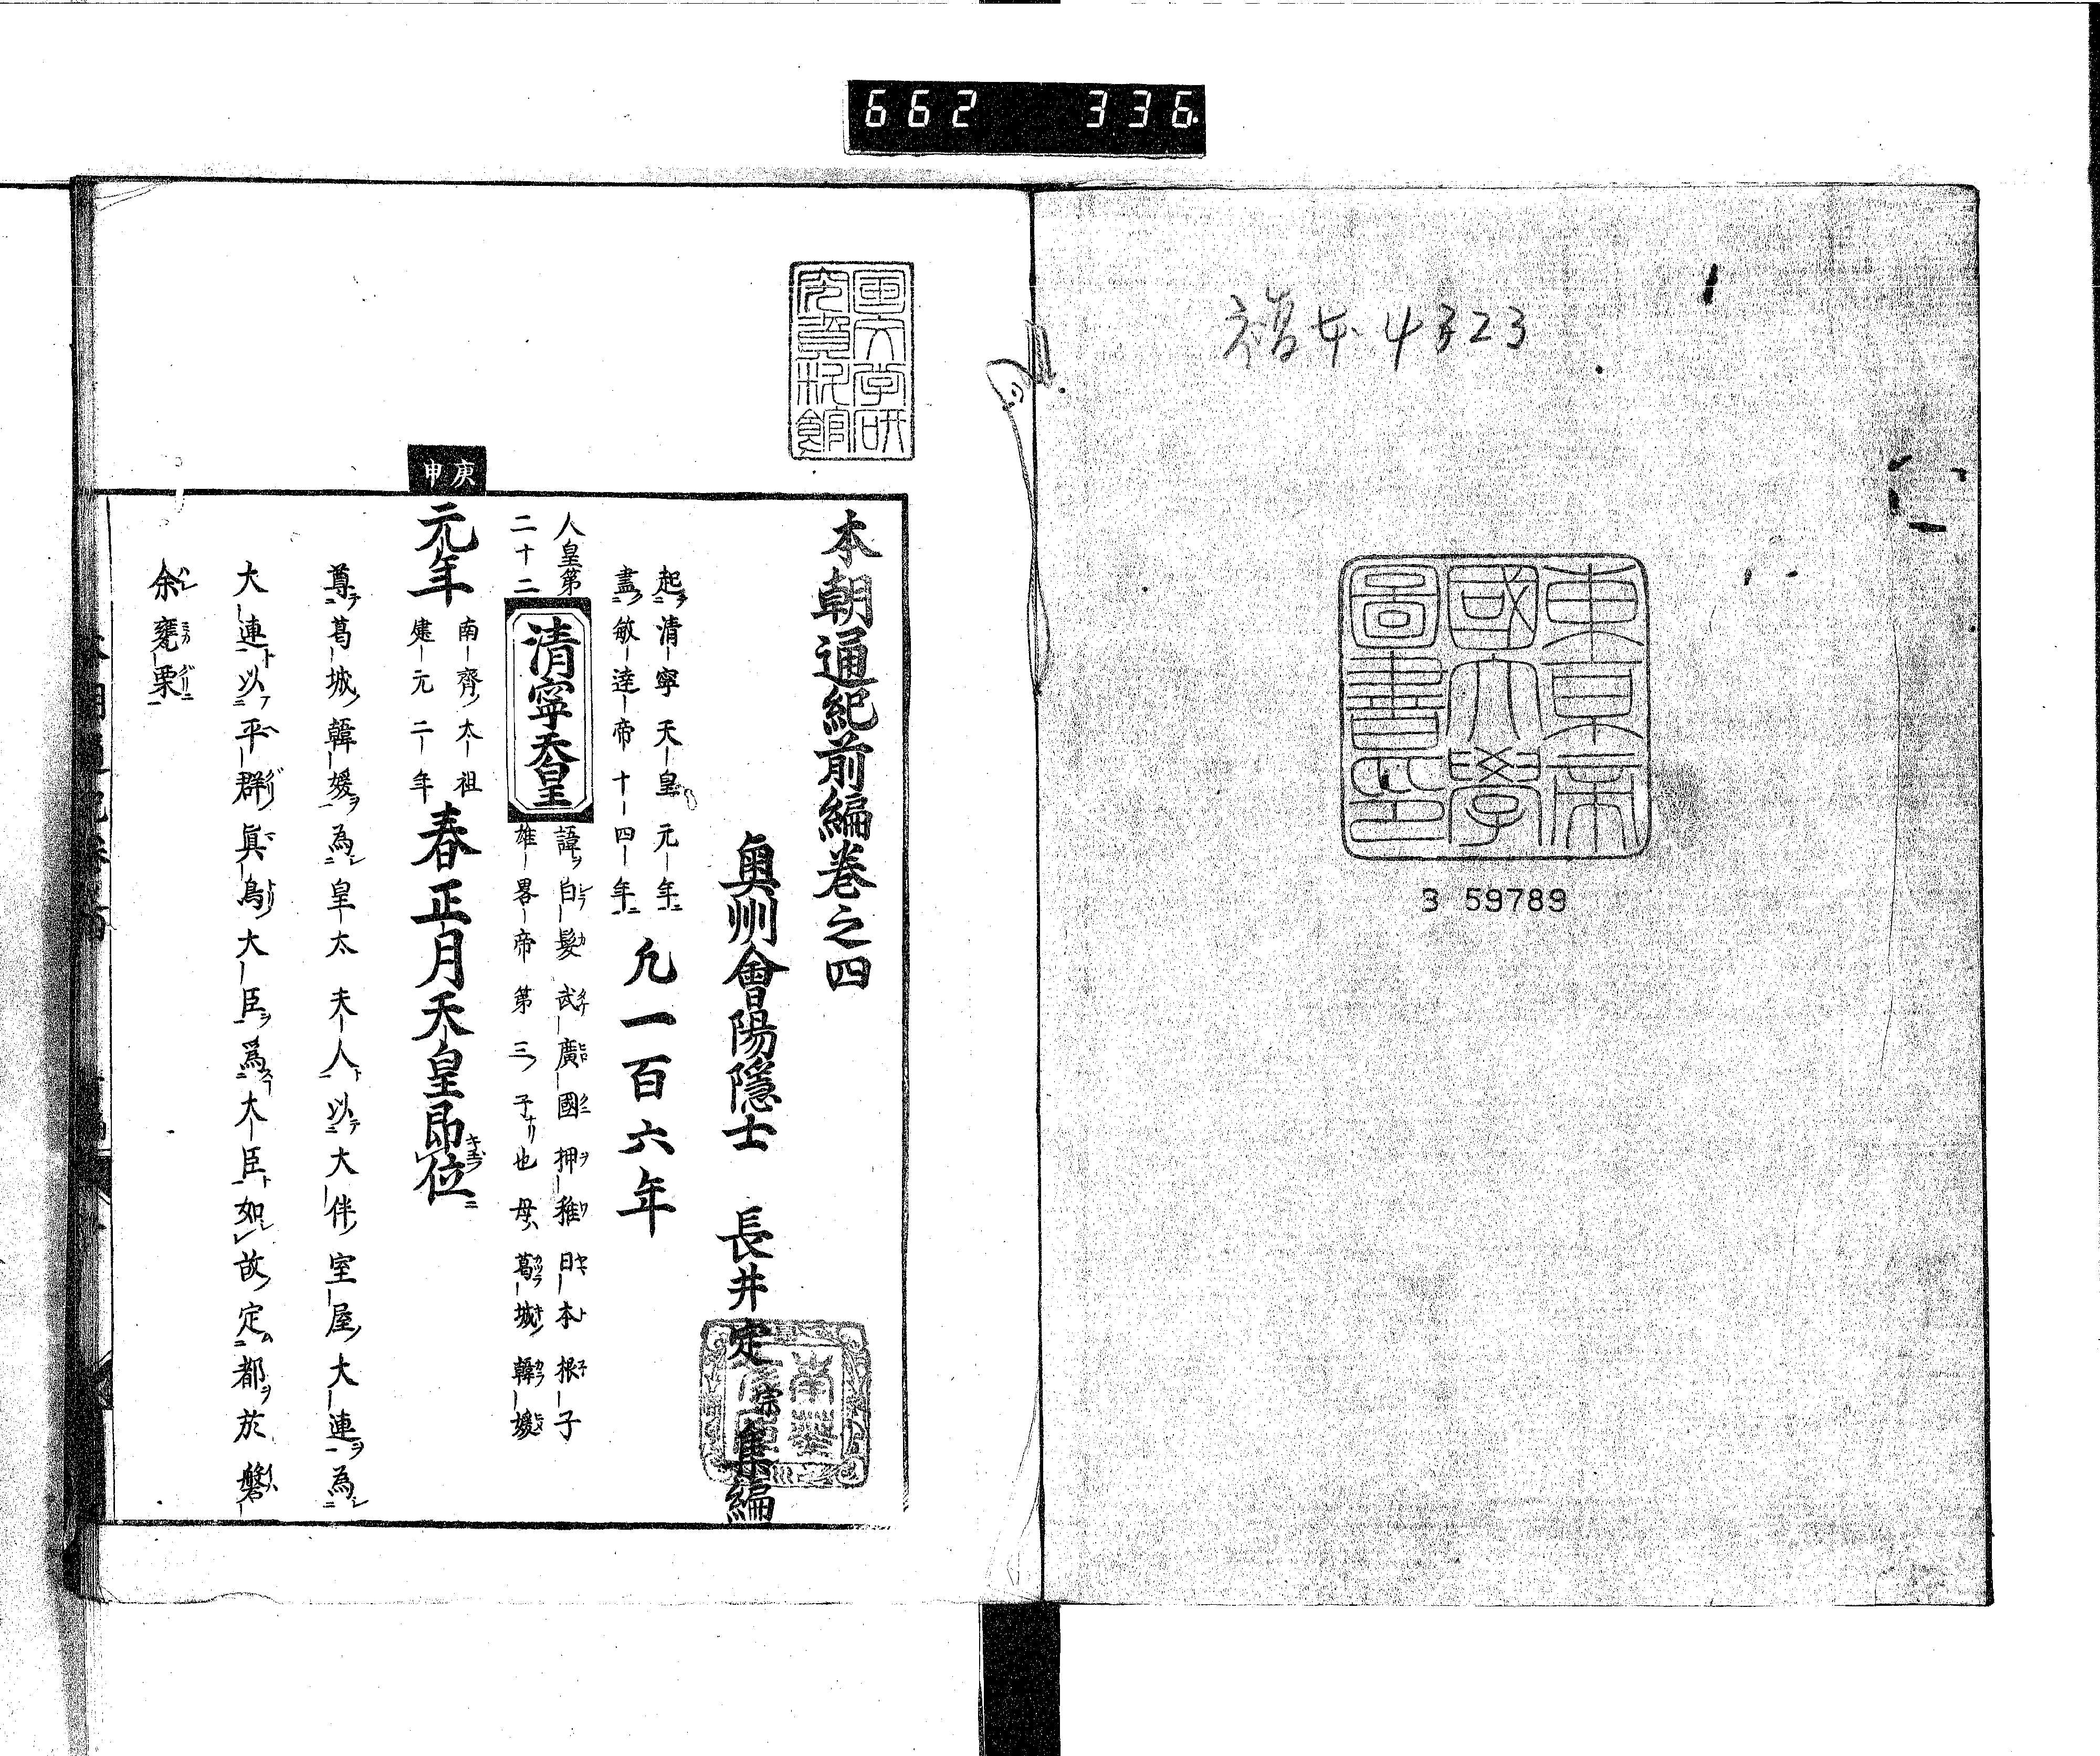 662 336
4323
東京帝
國大學
圖書印
3 59789
国文学研
究資料館
本朝通紀前編巻之四
奥州會陽隱士 長井定宗集編
起清寧天皇元年
盡敏達帝十四年
凡一百六年
人皇第
二十二
清寧天皇
諱白髮武廣國押稚日本根子
雄畧帝第三子也母葛城韓媛
庚申
元年
南齊太祖
建元二年
春正月天皇即位
尊葛城韓媛為皇太夫人以大伴室屋大連為
大連以平群眞鳥大臣爲大臣如故定都於磐
余甕栗